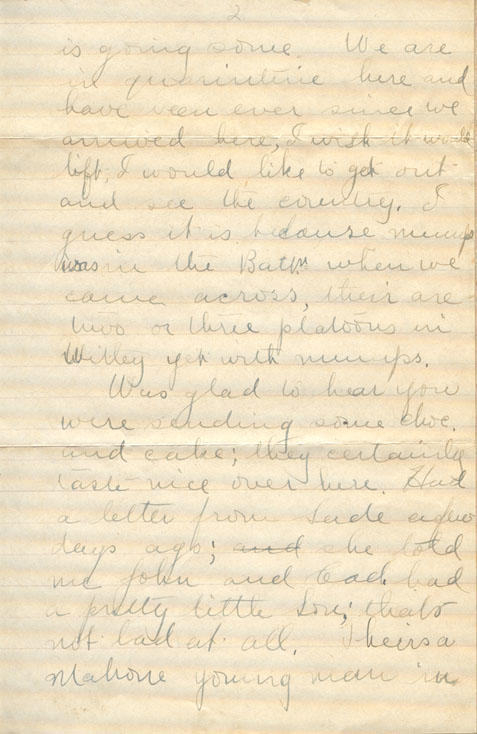 2
is going some. We are
in quarintine here and
have been ever since we
arrived here, I wish it would
lift, I would like to get out
and see the country. I
guess it is because mumps
was in the Battn when we
came across, their are
two or three platoons in
Witley yet with mumps.
Was glad to hear you
were sending some choc.
and cake; they certainly
taste nice over here. Had
a letter from Sade a few
days ago; and she told
me John and had
a pretty little son; thats
not bad at all. Theirs a
Mahone young man in